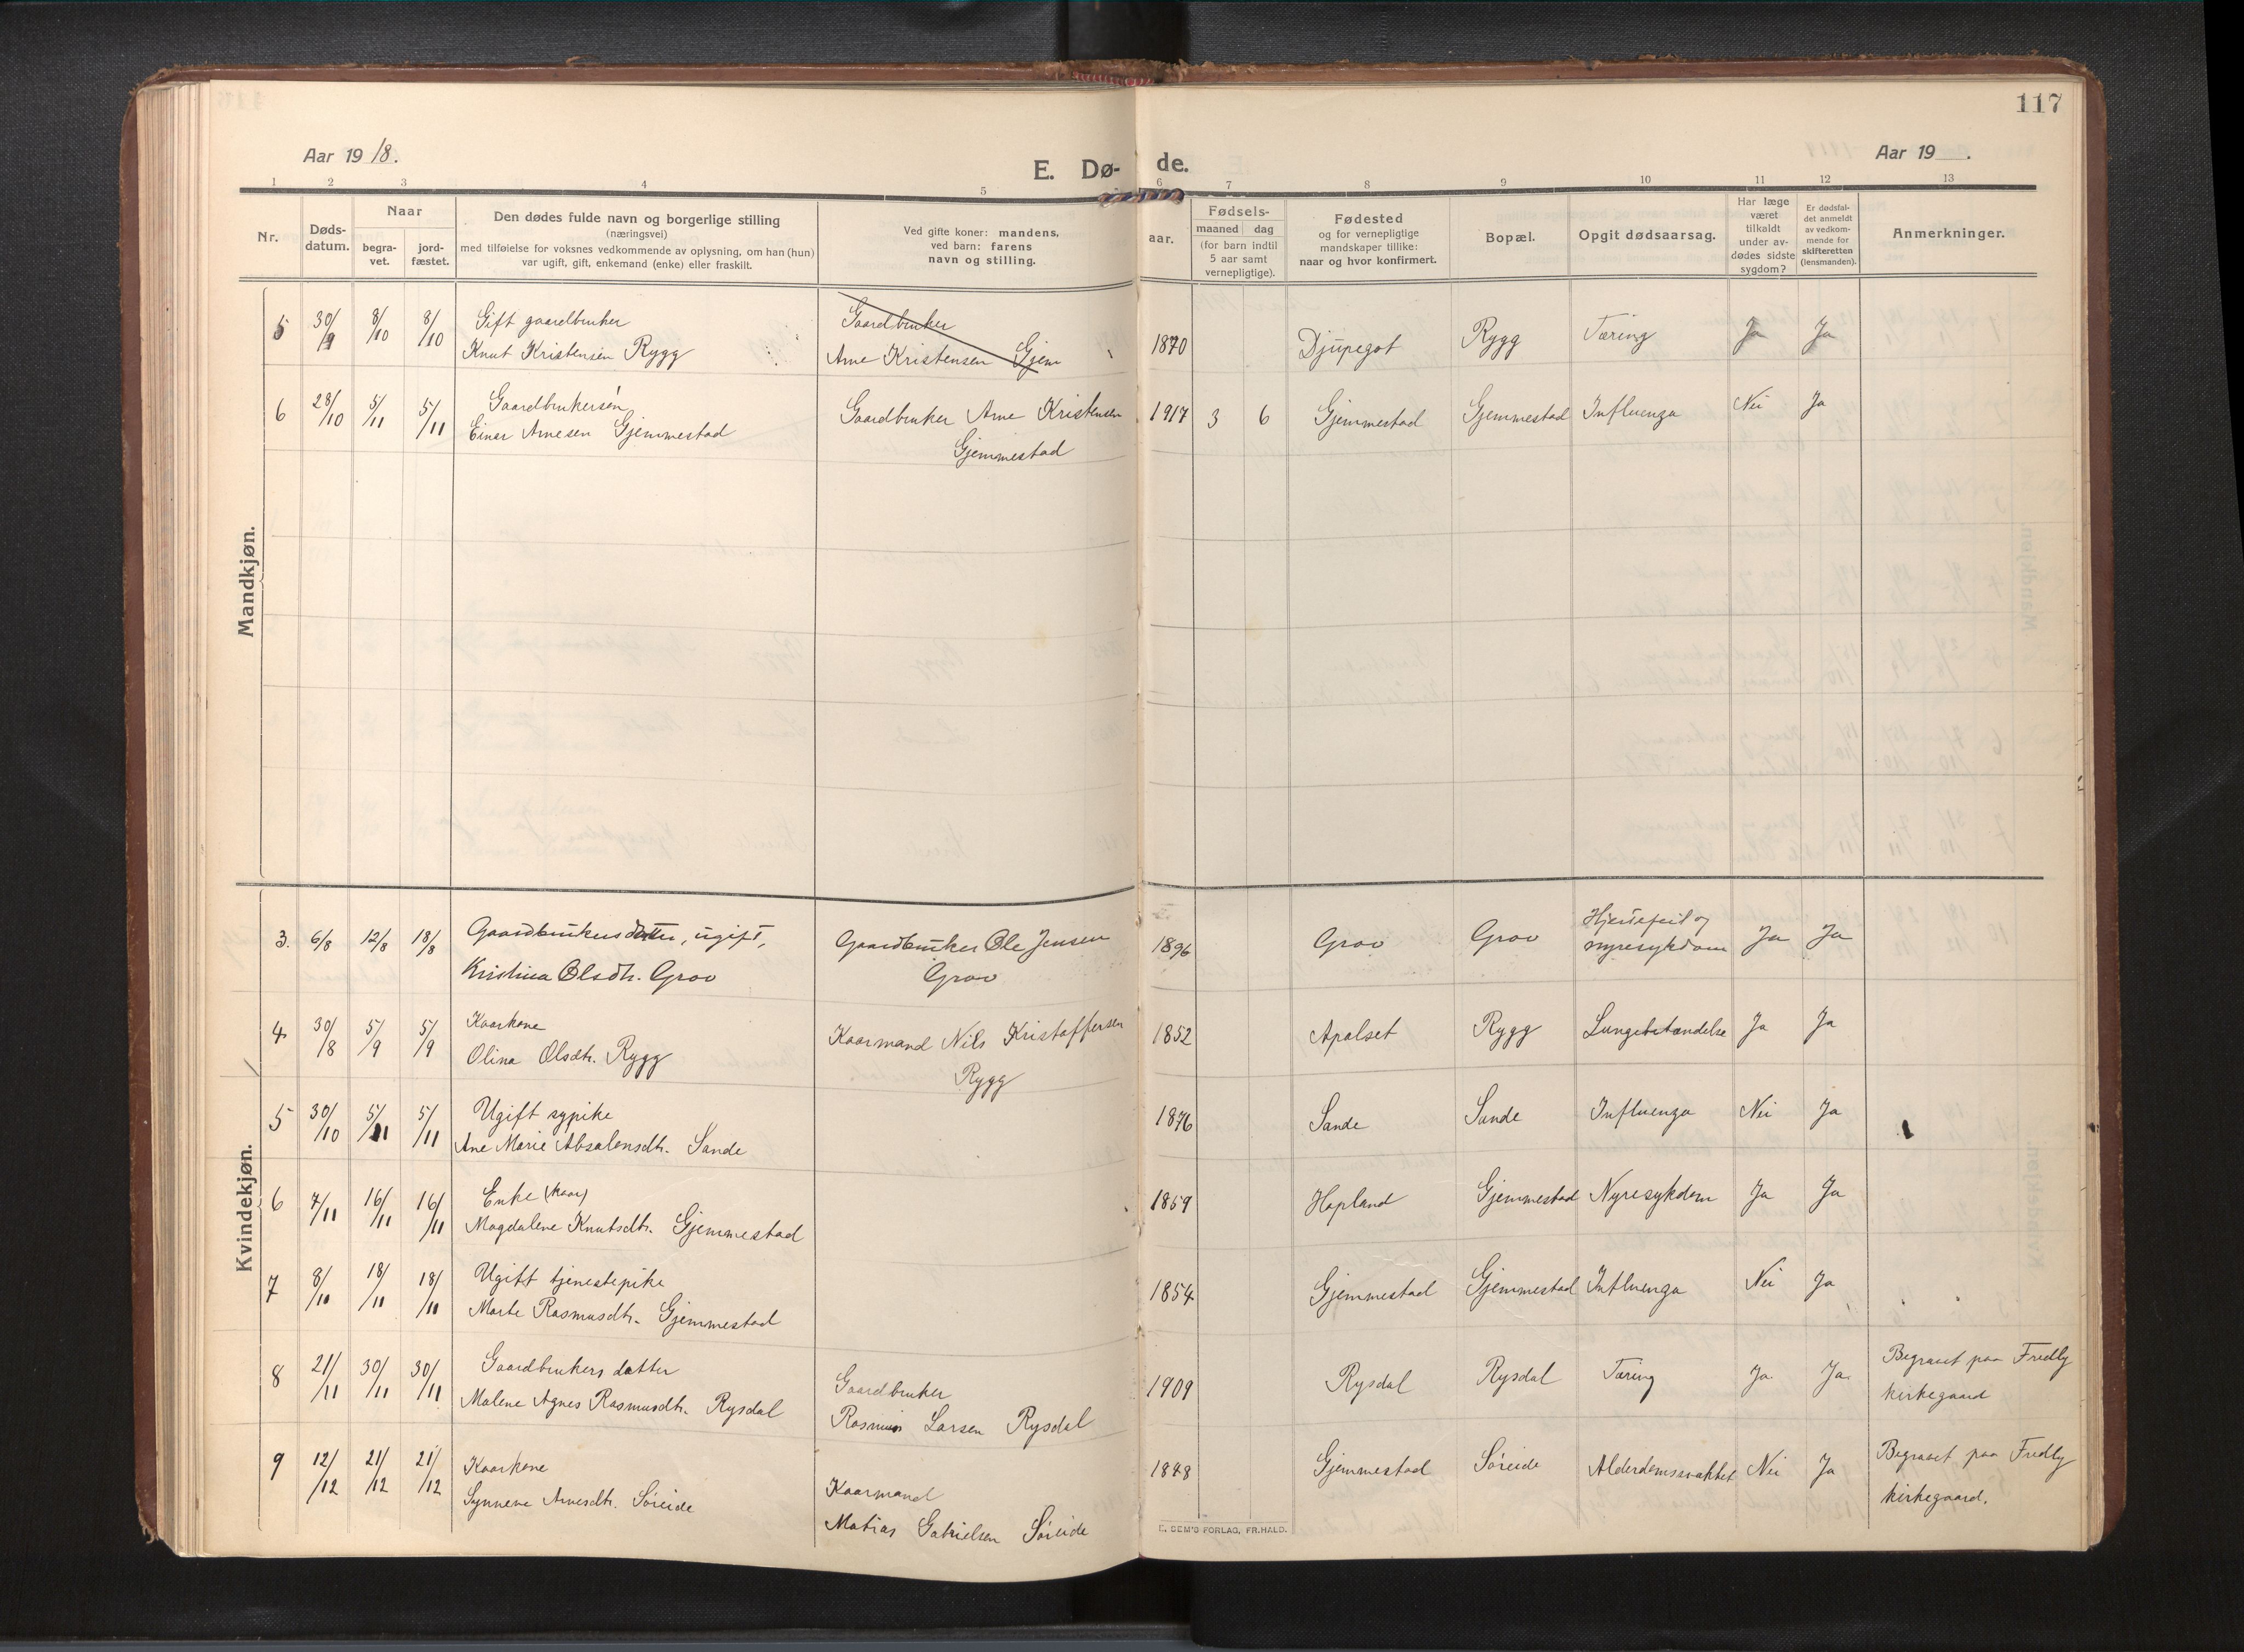 117
Aar 1918.
E. Dø-
de.
Aar 19 .
1 2 3 4 5 6 7 8 9 10 11 12 13
Nr.
Døds-
datum.
Naar
begra-
vet.
jord-
fæstet.
Den dødes fulde navn og borgerlige stilling
(næringsvei)
med tilføielse for voksnes vedkommende av oplysning, om han (hun)
var ugift, gift, enkemand (enke) eller fraskilt.
Ved gifte koner: mandens,
ved barn: farens
navn og stilling.
aar.
Fødsels-
maaned dag
(for barn indtil
5 aar samt
vernepligtige).
Fødested
og for vernepligtige
mandskaper tillike:
naar og hvor konfirmert.
Bopæl.
Opgit dødsaarsag.
Har læge
været
tilkaldt
under av-
dødes sidste
sygdom?
Er dødsfal-
det anmeldt
av vedkom-
mende for
skifteretten
(lensmanden).
Anmerkninger.
Mandkjøn.
5 30/9 8/10 8/10 Gift gaardbruker Gaardbruker
Knut Kristensen Rygg Arne Kristensen Gjem 1870 Djupegot Rygg Tæring Ja Ja
6 28/10 5/11 5/11 Gaardbrukersøn
Einar Arnesen Gjemmestad
Gaardbruker Arne Kristensen
Gjemmestad
1917 3 6 Gjemmestad Gjemmestad Influenza Nei Ja
Kvindekjøn.
3. 6/8 12/8 18/8 Gaardbrukersdatter, ugift,
Kristina Olsdtr. Grov
Gaardbruker Ole Jensen
Grov
1896 Grov Grov
Hjertefeil og
nyresykdom
Ja Ja
4 30/8 5/9 5/9 Kaarkone
Olina Olsdtr. Rygg
Kaarmand Nils Kristoffersen
Rygg
1852 Apalset Rygg Lungebetændelse Ja Ja
5 30/10 5/11 5/11 Ugift sypike
Ane Marie Absalonsdtr. Sande
1876 Sande Sande Influenza Nei Ja
6 7/11 16/11 16/11 Enke (kaar)
Magdalene Knutsdtr. Gjemmestad
1859 Hopland Gjemmestad Nyresykdom Ja Ja
7 8/11 18/11 18/11 Ugift tjenestepike
Marte Rasmusdtr. Gjemmestad
1854 Gjemmestad Gjemmestad Influenza Nei Ja
8 21/11 30/11 30/11 Gaardbrukers datter
Malene Agnes Rasmusdtr. Rysdal
Gaardbruker
Rasmus Larsen Rysdal
1909 Rysdal Rysdal Tæring Ja. Ja.
Begravet paa Fredly
kirkegaard
9 12/12 21/12 21/12 Kaarkone
Synneve Arnesdtr. Søreide
Kaarmand
Matias Gabrielsen Søreide
1848 Gjemmestad Søreide Alderdomssvakhet Nei Ja
Begravet paa Fredly
kirkegaard.
E. SEM'S FORLAG, FR.HALD.